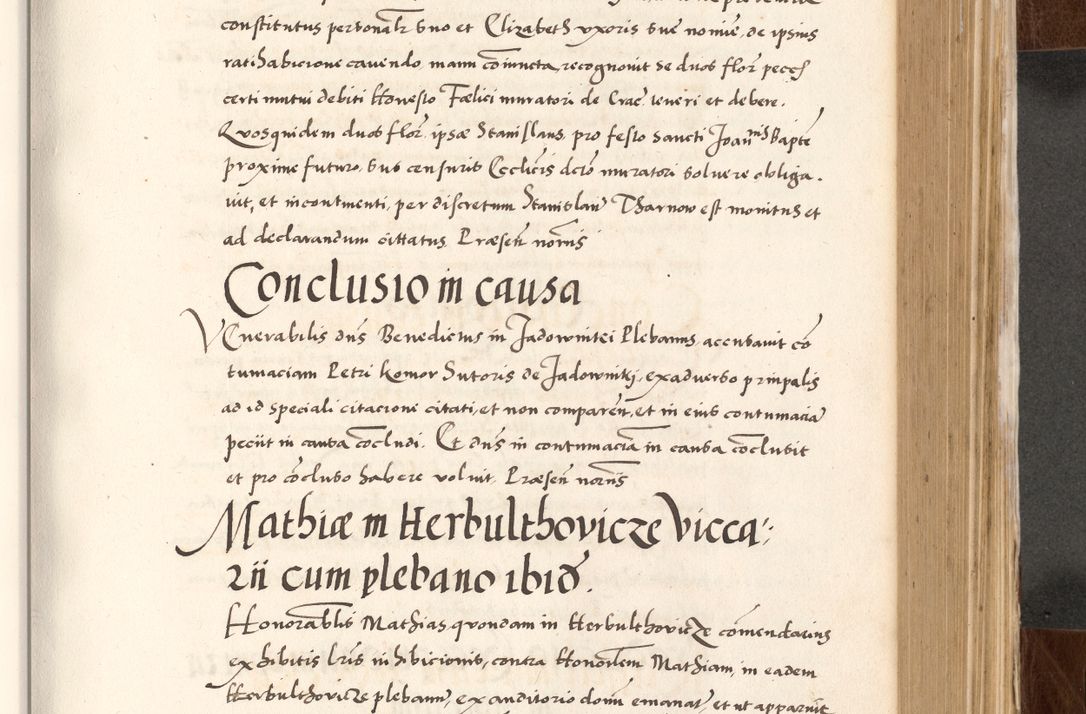 constitutus personalr suo et Elizabeth vxoris sue nomie, de ipsius
ratihabicione cavendo, manu coniuncta, recognovit se duos flor pecc
certi mutui debiti Honesto Fælici muratori de Crac. teneri et debere.
Quosquidem duos flor. ipsæ Stanislaus, pro festo Sancti Joannis Bapte
proxime futuro, sub censuris Ecclicis dcto muratori solvere obliga.
uit, et incontinenti, per discretum Stanislau Tharnow est monitus et
ad declarandum cittatus, Præsen norns
Conclusio in causa
VEnerabilis dns Benedictus in Jadowniki Plebanus, accusavit co
tumaciam Petri Komor Sutoris de Jadowniky, exadverso prinpalis
ad id speciali citacione citati, et non comparen, et in eius contumacia
peciit in causa cocludi. Et dns in contumacia in causa coclusit
et pro cocluso habere voluit, Præsen norns
Mathiæ in Herbulthovicze Vicca-
rii cum plebano ibid.
Honorablis Mathias, quondam in Herbulthovicze comendarius
exhibitis lris inhibicionis, contra Honorilem Mathiam, in eadem
Herbulthovicze plebanu, ex auditorio domi emanat, et ut apparuit